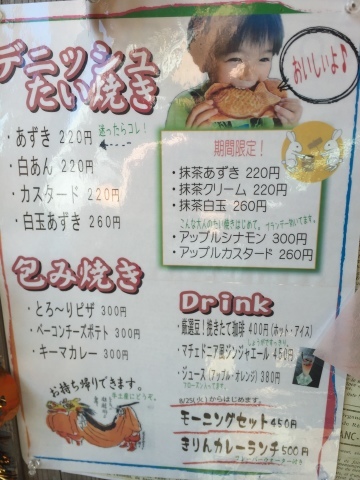 デニッシュ
たい焼き
おいしいよ♪
・あずき 220円
迷ったらコレ!
・白あん 220円
・カスタード 220円
・白玉あずき 260円
期間限定!
・抹茶あずき 220円
・抹茶クリーム 220円
・抹茶白玉 260円
こんな大人のたい焼きはじめて。ブランデーめいてます。
・アップルシナモン 300円
・アップルカスタード 260円
包み焼き
・とろ〜りピザ 300円
・ベーコンチーズポテト 300円
・キーマカレー 300円
お持ち帰りできます。
Drink
・厳選豆!挽きたて珈琲 400円(ホット・アイス)
・マチェドニア風ジンジャエール 450円
・ジュース(アップル・オレンジ) 380円
8/25(火)からはじめます。
モーニングセット450円
きりんカレーランチ500円